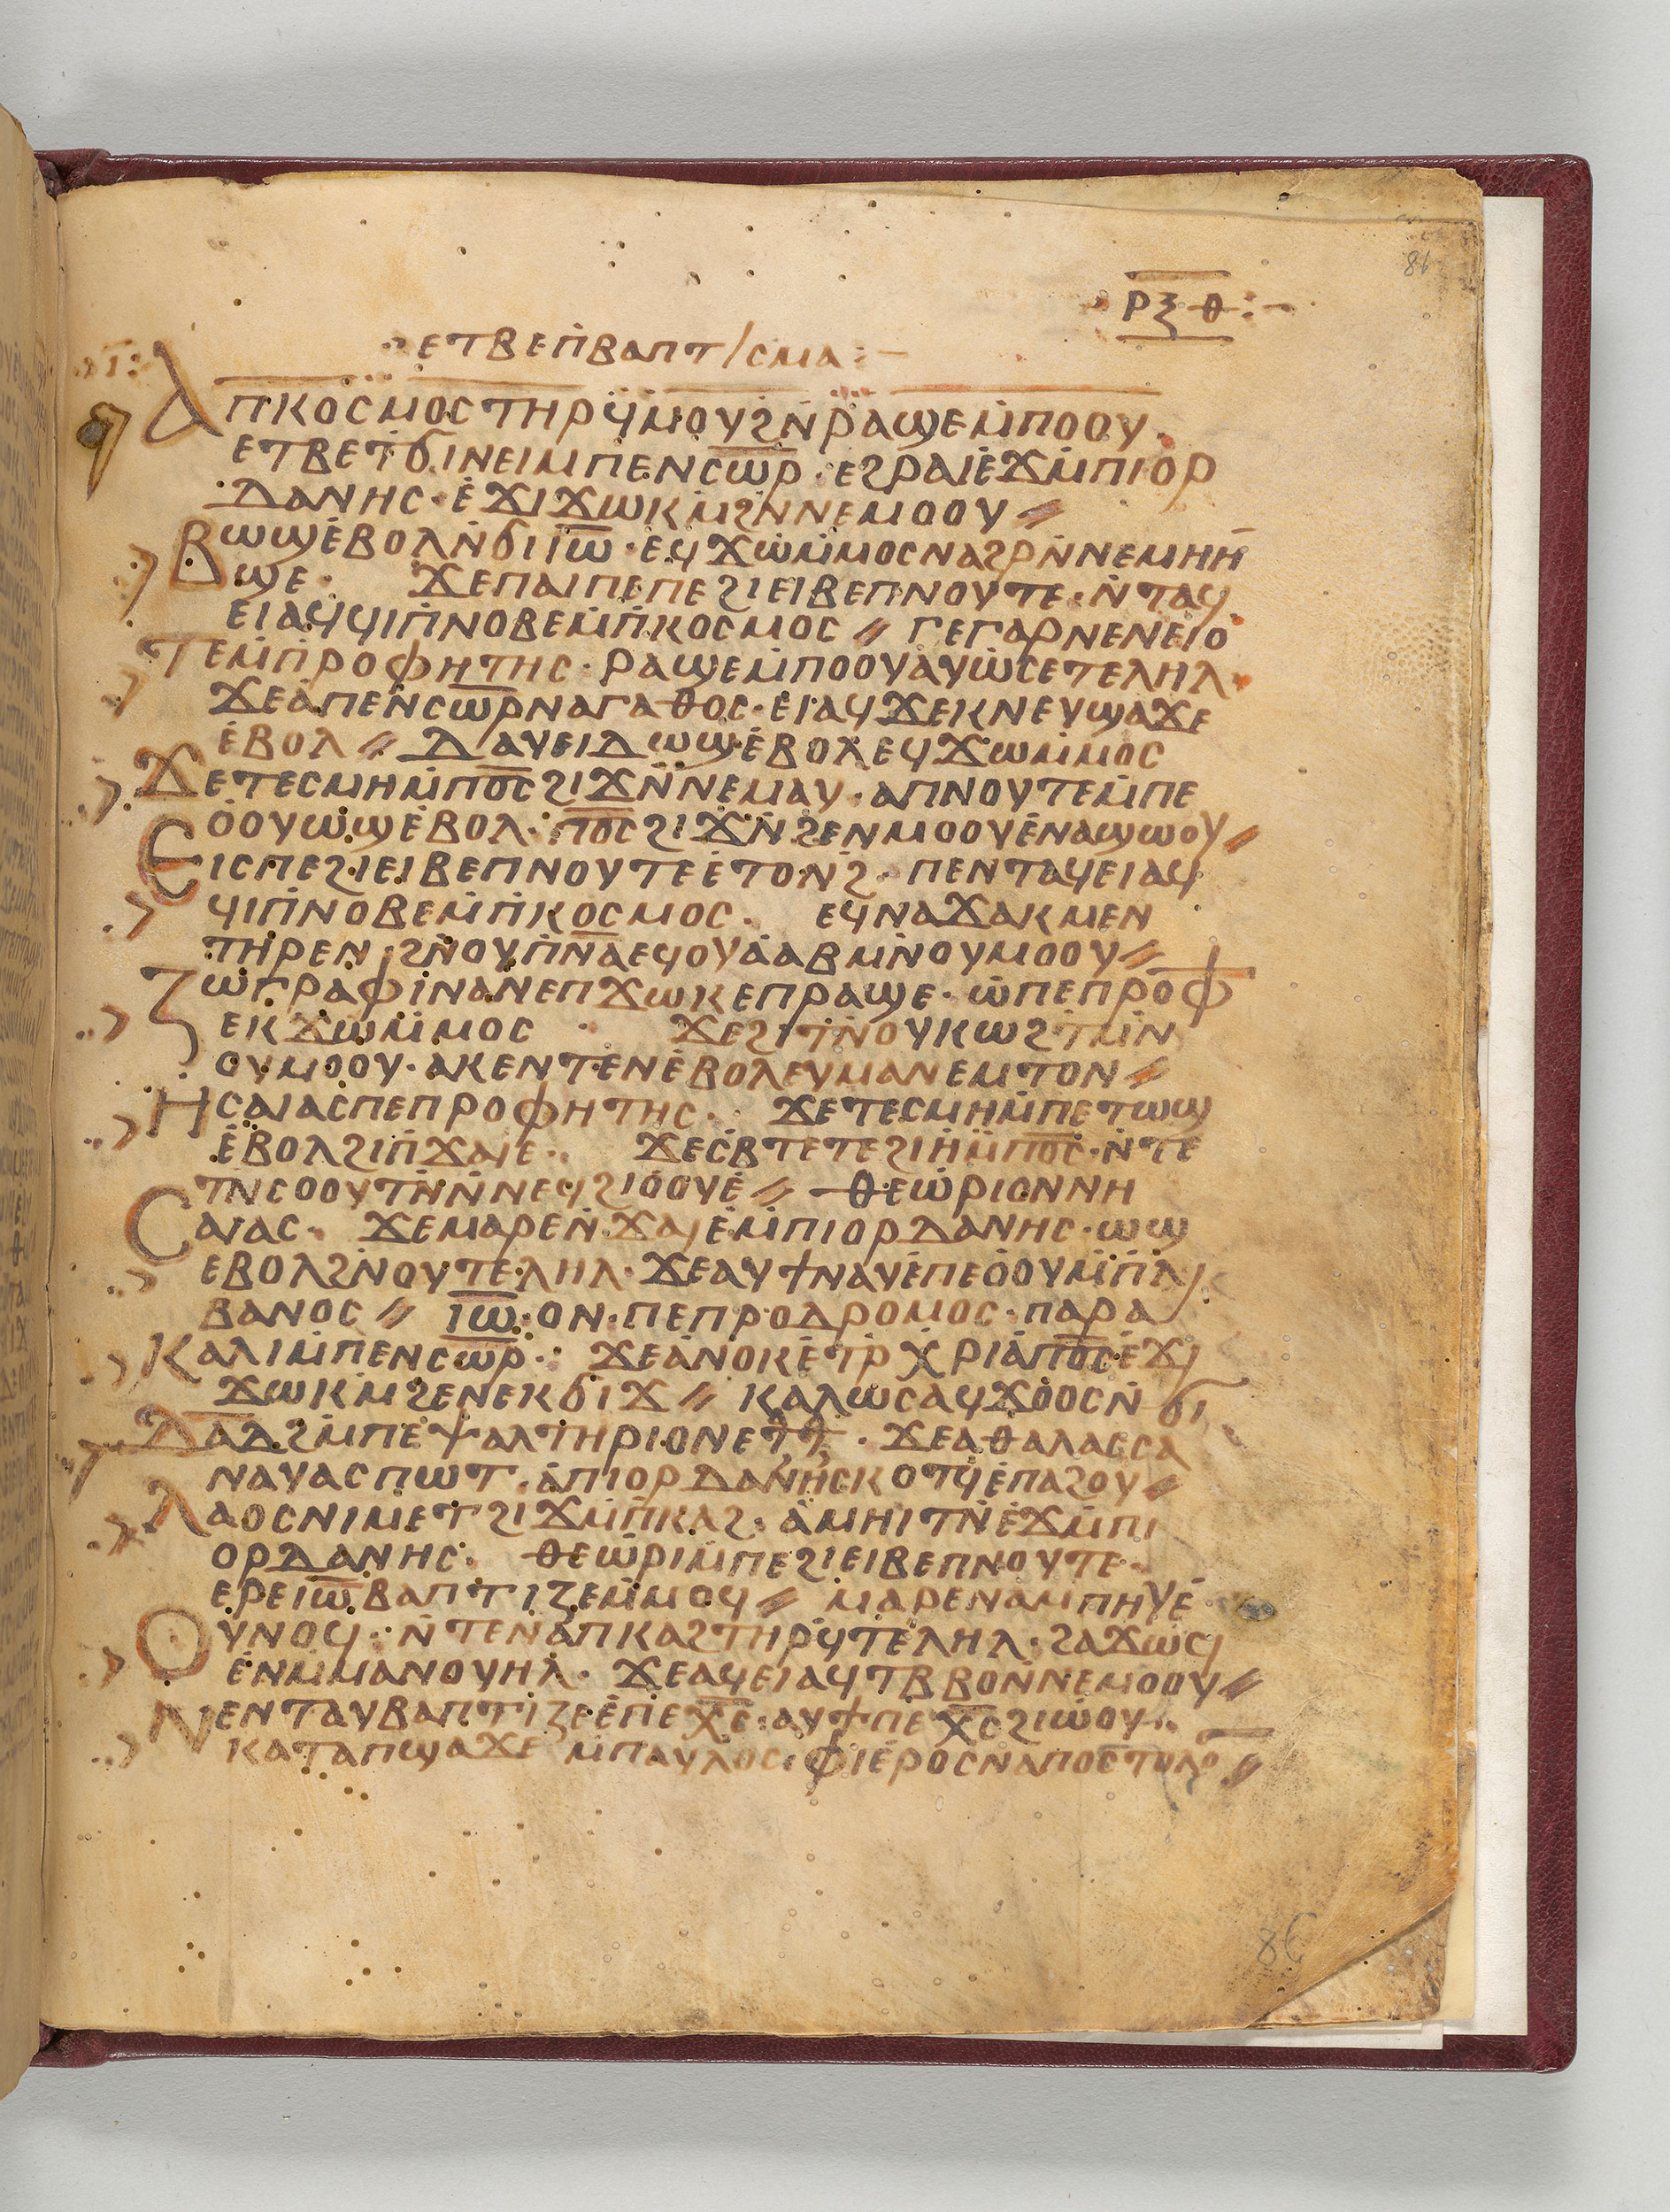 ⲣⲝⲑ
ⲉⲧⲃⲉⲡ̇ⲃⲁⲡⲧⲓⲥⲙⲁ
ⲁⲡⲕⲟⲥⲙⲟⲥⲧⲏⲣϥ̇ⲙⲟⲩϩⲛ̇ⲣⲁϣⲉⲙ̇ⲡⲟⲟⲩ·
ⲉⲧⲃⲉⲧϭⲓⲛⲉⲓⲙⲡⲉⲛⲥ̅ⲱ̅ⲣ̅·ⲉϩⲣⲁⲓⲉ̇ϫⲙ̇ⲡⲓⲟⲣ
ⲇⲁⲛⲏⲥ·ⲉ̇ϫⲓϫⲱⲕⲙ̇ϩⲛ̇ⲛⲉⲙⲟⲟⲩ⸗
ⲃⲱϣⲉ̇ⲃⲟⲗⲛ̇ϭⲓⲓ̅ⲱ̅·ⲉϥϫⲱⲙ̇ⲙⲟⲥⲛⲁϩⲣⲛ̇ⲛⲉⲙⲏⲏ
ϣⲉ· ϫⲉⲡⲁⲓⲡⲉⲡⲉϩⲓⲉⲓⲃⲉⲡⲛⲟⲩⲧⲉ·ⲛ̇ⲧⲁϥ
ⲉⲓⲁϥϥⲓⲡ̇ⲛⲟⲃⲉⲙ̇ⲡ̇ⲕⲟⲥⲙⲟⲥ⸗ ⲅⲉⲅⲁⲣⲛⲉⲛⲉⲓⲟ
ⲧⲉⲙ̇ⲡⲣⲟⲫⲏⲧⲏⲥ·ⲣⲁϣⲉⲙ̇ⲡⲟⲟⲩⲁⲩⲱ̇ⲥⲉⲧⲉⲗⲏⲗ·
ϫⲉⲁ̇ⲡⲉⲛⲥ̅ⲱ̅ⲣ̅ⲛⲁⲅⲁⲑⲟⲥ·ⲉⲓⲁϥϫⲉⲕⲛⲉⲩϣⲁϫⲉ
ⲉ̇ⲃⲟⲗ⸗ ⲇⲁⲩⲉⲓⲇⲱϣⲉ̇ⲃⲟⲗⲉϥϫⲱⲙ̇ⲙⲟⲥ
ϫⲉⲧⲉⲥⲙⲏⲙ̇ⲡ̅ⲟ̅ⲥ̅ϩⲓϫⲛ̇ⲛⲉⲙⲁⲩ·ⲁⲡⲛⲟⲩⲧⲉⲙ̇ⲡⲉ
ⲟ̇ⲟⲩⲱϣⲉ̇ⲃⲟⲗ·ⲡ̅ⲟ̅ⲥ̅ϩⲓϫⲛ̇ϩⲉⲛⲙⲟⲟⲩⲉ̇ⲛⲁϣⲱⲟⲩ⸗
ⲉⲓⲥⲡⲉϩⲓⲉⲓⲃⲉⲡⲛⲟⲩⲧⲉⲉ̇ⲧⲟⲛϩ̇·ⲡⲉⲛⲧⲁϥⲉⲓⲁϥ
ϥⲓⲡ̇ⲛⲟⲃⲉⲙ̇ⲡ̇ⲕⲟⲥⲙⲟⲥ· ⲉϥⲛⲁϫⲁⲕⲙⲉⲛ
ⲧⲏⲣⲉⲛ·ϩⲛ̇ⲟⲩⲡ̅ⲛ̅ⲁ̅ⲉϥⲟⲩⲁ̇ⲁⲃⲙ̇ⲛⲟⲩⲙⲟⲟⲩ⸗
ⲍⲱⲅⲣⲁⲫⲓⲛⲁⲛⲉⲡϫⲱⲕⲉⲡⲣⲁϣⲉ·ⲱ̇ⲡⲉⲡⲣⲟⲫ
ⲉⲕϫⲱⲙ̇ⲙⲟⲥ ϫⲉϩⲓⲧⲛ̇ⲟⲩⲕⲱϩⲧ̇ⲙⲛ̇
ⲟⲩⲙⲟⲟⲩ·ⲁⲕⲉⲛⲧⲉⲛⲉ̇ⲃⲟⲗⲉⲩⲙⲁⲛⲉⲙⲧⲟⲛ⸗
ⲏⲥⲁⲓⲁⲥⲡⲉⲡⲣⲟⲫⲏⲧⲏⲥ· ϫⲉⲧⲉⲥⲙⲏⲙ̇ⲡⲉⲧⲱϣ
ⲉ̇ⲃⲟⲗϩⲓⲡ̇ϫⲁⲓⲉ· ϫⲉⲥⲃⲧⲉⲧⲉϩⲓⲏⲙ̇ⲡ̅ⲟ̅ⲥ̅·ⲛ̇ⲧⲉ
ⲧⲛⲥⲟⲟⲩⲧⲛ̇ⲛ̇ⲛⲉϥϩⲓⲟ̇ⲟⲩⲉ̇⸗ ⲑⲉⲱ̇ⲣⲓⲟⲛⲛⲏ
ⲥⲁⲓⲁⲥ· ϫⲉⲙⲁⲣⲉⲛ̇ϫⲁⲓⲉ̇ⲙ̇ⲡⲓⲟⲣⲇⲁⲛⲏⲥ·ⲱϣ
ⲉⲃⲟⲗϩⲛ̇ⲟⲩⲧⲉⲗⲏⲗ·ϫⲉⲁⲩϯⲛⲁⲩⲉ̇ⲡⲉⲟ̇ⲟⲩⲙ̇ⲡ̇ⲗⲓ
ⲃⲁⲛⲟⲥ⸗ ⲓ̅ⲱ̅·ⲟⲛ·ⲡⲉⲡⲣⲟⲇⲣⲟⲙⲟⲥ·ⲡⲁⲣⲁ
ⲕⲁⲗⲓⲙ̇ⲡⲉⲛⲥ̅ⲱ̅ⲣ̅· ϫⲉⲁ̇ⲛⲟⲕⲉ̇ⲧⲣ̇ⲭⲣⲓⲁ̇ⲡ̅ⲟ̅ⲥ̅ⲉ̇ϫⲓ
ϫⲱⲕⲙ̇ϩⲉⲛⲉⲕϭⲓϫ⸗ ⲕⲁⲗⲱⲥⲁϥϫⲟ̇ⲟⲥⲛ̇ϭⲓ
ⲇ̅ⲁ̅ⲇ̅ϩⲙ̇ⲡⲉⲯⲁⲗⲧⲏⲣⲓⲟⲛⲉⲧⲧ· ϫⲉⲁⲑⲁⲗⲁⲥⲥⲁ
ⲛⲁⲩⲁⲥⲡⲱⲧ·ⲁ̇ⲡⲓⲟⲣⲇⲁⲛⲏⲥⲕⲟⲧϥ̇ⲉ̇ⲡⲁϩⲟⲩ⸗
ⲗⲁⲟⲥⲛⲓⲙⲉⲧϩⲓϫⲙ̇ⲡ̇ⲕⲁϩ·ⲁ̇ⲙⲏⲓⲧⲛ̇ⲉ̇ϫⲙ̇ⲡⲓ
ⲟⲣⲇⲁⲛⲏⲥ· ⲑⲉⲱ̇ⲣⲓⲙⲡⲉϩⲓⲉⲓⲃⲉⲡⲛⲟⲩⲧⲉ·
ⲉⲣⲉⲓ̅ⲱ̅ⲃⲁⲡⲧⲓⲍⲉⲙ̇ⲙⲟϥ⸗ ⲙⲁⲣⲉⲛⲁⲙⲡⲏⲩⲉ̇
ⲟⲩⲛⲟϥ·ⲛ̇ⲧⲉⲛⲁ̇ⲡⲕⲁϩⲧⲏⲣϥ̇ⲧⲉⲗⲏⲗ·ϩⲁϫⲱϥ
ⲉ̇ⲛⲙ̇ⲙⲁⲛⲟⲩⲏⲗ· ϫⲉⲁϥⲉⲓⲁϥⲧⲃⲃⲟⲛ̇ⲛⲉⲙⲟⲟⲩ⸗
ⲛⲉⲛⲧⲁⲩⲃⲁⲡⲧⲓⲍⲉⲉ̇ⲡⲉⲭ̅ⲥ̅·ⲁⲩϯⲡⲉⲭ̅ⲥ̅ϩⲓⲱ̇ⲟⲩ·
ⲕⲁⲧⲁⲡϣⲁϫⲉⲙ̇ⲡⲁⲩⲗⲟⲥ·ⲫⲓⲉ̇ⲣⲟⲥⲛⲁⲡⲟⲥⲧⲟⲗⲟ⸗
86